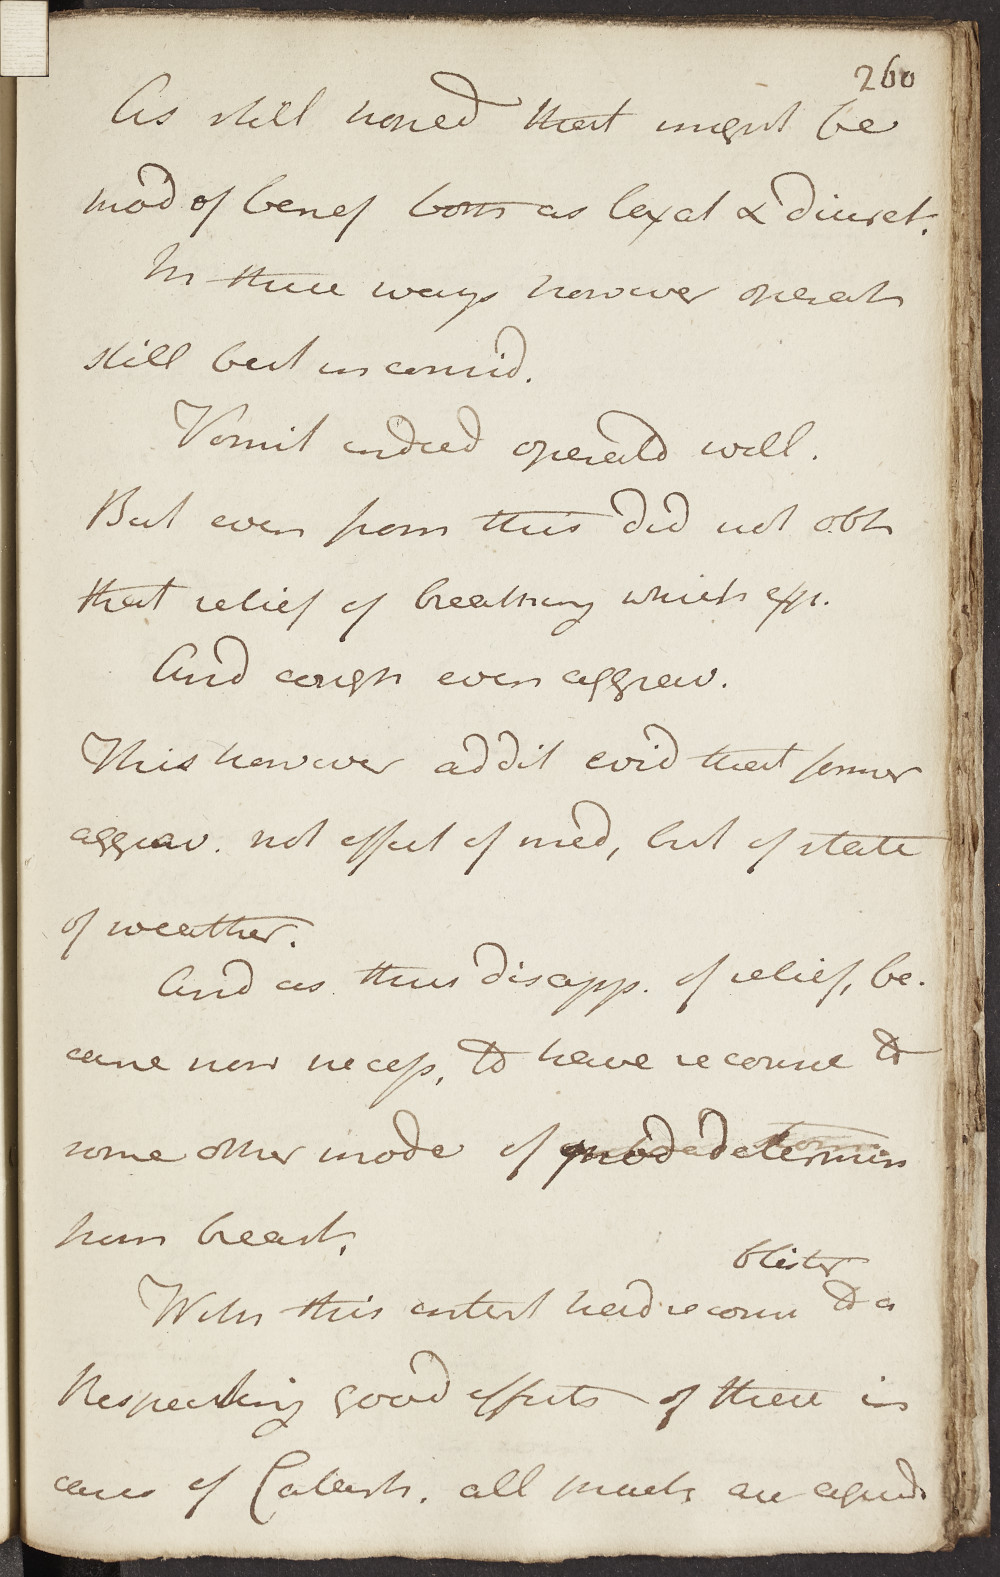 260
As still hoped that might be
mod of benef both as laxat & diuret.
In these ways however operat
still but inconsid.
Vomit indeed operated well.
But even from this did not obt
that relief of breathing which exp.
And cough even aggrav.
This however addit evid that former
aggrav. not effect of med, but of state
of weather.
And as thus disapp. of relief, be-
came now necess, to have recourse to
some other mode of determin
from breast.
blister
With this intent had recour to a
Respecting good effects of these in
cases of Catarrh. all pract are agreed